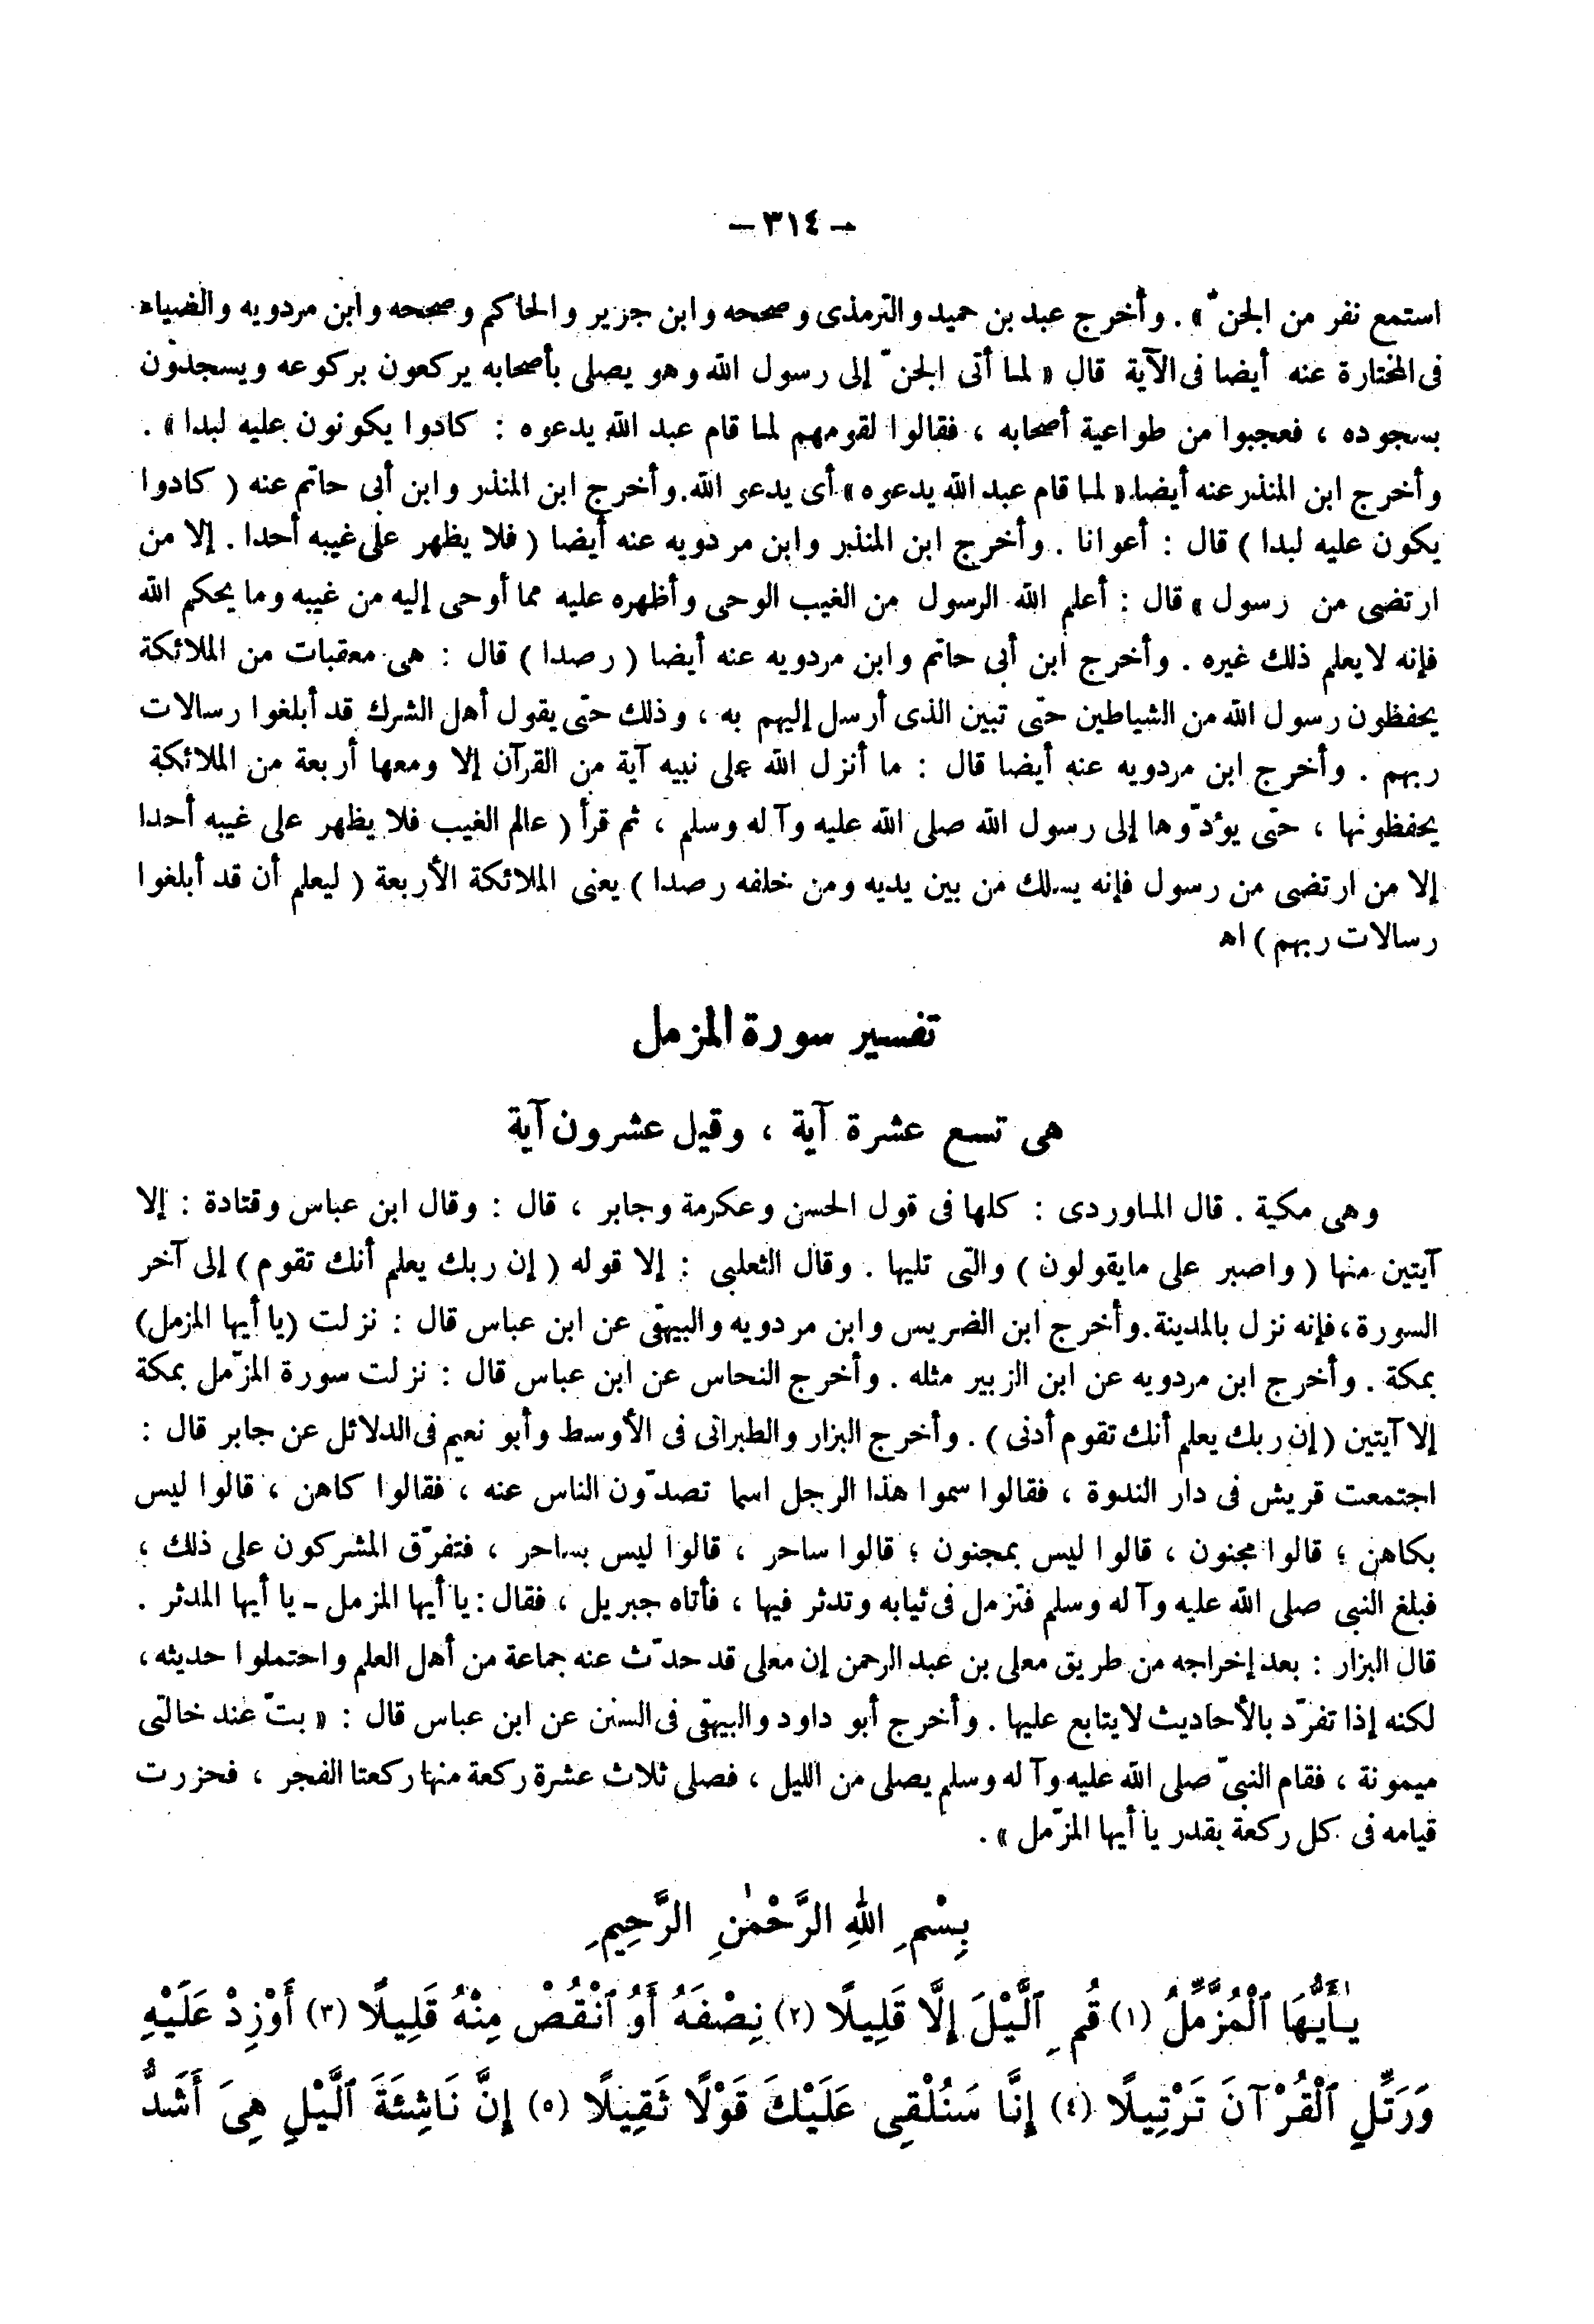 — ٣١٤ —
استمع نفر من الجنّ » . وأخرج عبد بن حميد والترمذى وصححه وابن جرير والحاكم وصححه وابن مردويه والضياء
فى المختارة عنه أيضا فى الآية قال « لما أتى الجنّ إلى رسول الله وهو يصلى بأصحابه يركعون بركوعه ويسجدون
بسجوده ، فعجبوا من طواعية أصحابه ، فقالوا لقومهم لما قام عبد الله يدعوه : كادوا يكونون عليه لبدا » .
وأخرج ابن المنذر عنه أيضا « لما قام عبد الله يدعوه » أى يدعو الله. وأخرج ابن المنذر وابن أبى حاتم عنه ( كادوا
يكون عليه لبدا ) قال : أعوانا . وأخرج ابن المنذر وابن مردويه عنه أيضا ( فلا يظهر على غيبه أحدا . إلا من
ارتضى من رسول » قال : أعلم الله الرسول من الغيب الوحى وأظهره عليه مما أوحى إليه من غيبه وما يحكم الله
فإنه لايعلم ذلك غيره . وأخرج ابن أبى حاتم وابن مردويه عنه أيضا ( رصدا ) قال : هى معقبات من الملائكة
يحفظون رسول الله من الشياطين حتى تبين الذى أرسل إليهم به ، وذلك حتى يقول أهل الشرك قد أبلغوا رسالات
ربهم . وأخرج ابن مردويه عنه أيضا قال : ما أنزل الله على نبيه آية من القرآن إلا ومعها أربعة من الملائكة
يحفظونها ، حتى يؤدّوها إلى رسول الله صلى الله عليه وآله وسلم ، ثم قرأ ( عالم الغيب فلا يظهر على غيبه أحدا
إلا من ارتضى من رسول فإنه يسلك من بين يديه ومن خلفه رصدا ) يعنى الملائكة الأربعة ( ليعلم أن قد أبلغوا
رسالات ربهم ) اه
تفسير سورة المزمل
هى تسع عشرة آية ، وقيل عشرون آية
وهى مكية . قال الماوردى : كلها فى قول الحسن وعكرمة وجابر ، قال : وقال ابن عباس وقتادة : إلا
آيتين منها ( واصبر على مايقولون ) والتى تليها . وقال الثعلبى : إلا قوله ( إن ربك يعلم أنك تقوم ) إلى آخر
السورة ، فإنه نزل بالمدينة. وأخرج ابن الضريس وابن مردويه والبيهقى عن ابن عباس قال : نزلت (يا أيها المزمل)
بمكة . وأخرج ابن مردويه عن ابن الزبير مثله . وأخرج النحاس عن ابن عباس قال : نزلت سورة المزّمل بمكة
إلا آيتين ( إن ربك يعلم أنك تقوم أدنى ) . وأخرج البزار والطبرانى فى الأوسط وأبو نعيم فى الدلائل عن جابر قال :
اجتمعت قريش فى دار الندوة ، فقالوا سموا هذا الرجل اسما تصدّون الناس عنه ، فقالوا كاهن ، قالوا ليس
بكاهن ؛ قالوا مجنون ، قالوا ليس بمجنون ؛ قالوا ساحر ، قالوا ليس بساحر ، فتفرّق المشركون على ذلك ،
فبلغ النبى صلى الله عليه وآله وسلم فتزمل فى ثيابه وتدثر فيها ، فأتاه جبريل ، فقال : يا أيها المزمل - يا أيها المدثر .
قال البزار : بعد إخراجه من طريق معلى بن عبد الرحمن إن معلى قد حدّث عنه جماعة من أهل العلم واحتملوا حديثه ،
لكنه إذا تفرّد بالأحاديث لايتابع عليها . وأخرج أبو داود والبيهقى فى السنن عن ابن عباس قال : « بتّ عند خالتى
ميمونة ، فقام النبىّ صلى الله عليه وآله وسلم يصلى من الليل ، فصلى ثلاث عشرة ركعة منها ركعتا الفجر ، فحزرت
قيامه فى كل ركعة بقدر يا أيها المزّمل » .
بِسْمِ اللهِ الرَّحْمٰنِ الرَّحِيمِ
يٰأَيُّهَا ٱلْمُزَّمِّلُ (١) قُمِ ٱلَّيْلَ إِلَّا قَلِيلًا (٢) نِصْفَهُ أَوُ ٱنْقُصْ مِنْهُ قَلِيلًا (٣) أَوْزِدْ عَلَيْهِ
وَرَتِّلِ ٱلْقُرْآنَ تَرْتِيلًا (٤) إِنَّا سَنُلْقِى عَلَيْكَ قَوْلًا ثَقِيلًا (٥) إِنَّ نَاشِئَةَ ٱلَّيْلِ هِىَ أَشَدُّ